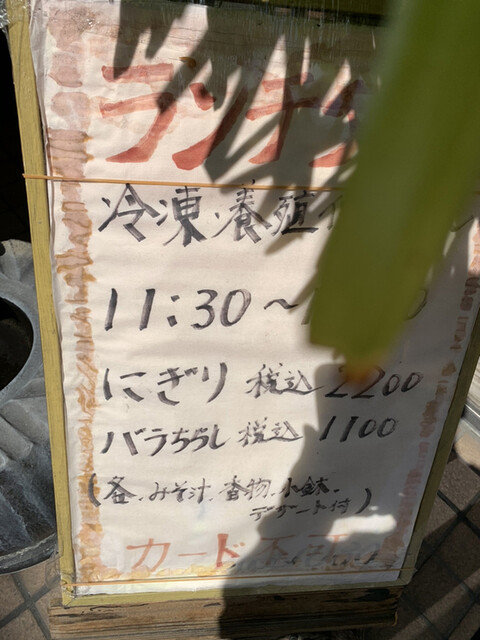 ランチ
冷凍・養殖
11:30～
にぎり 税込 2200
バラちらし 税込 1100
(各、みそ汁、香物、小鉢、
デザート付)
カード不可